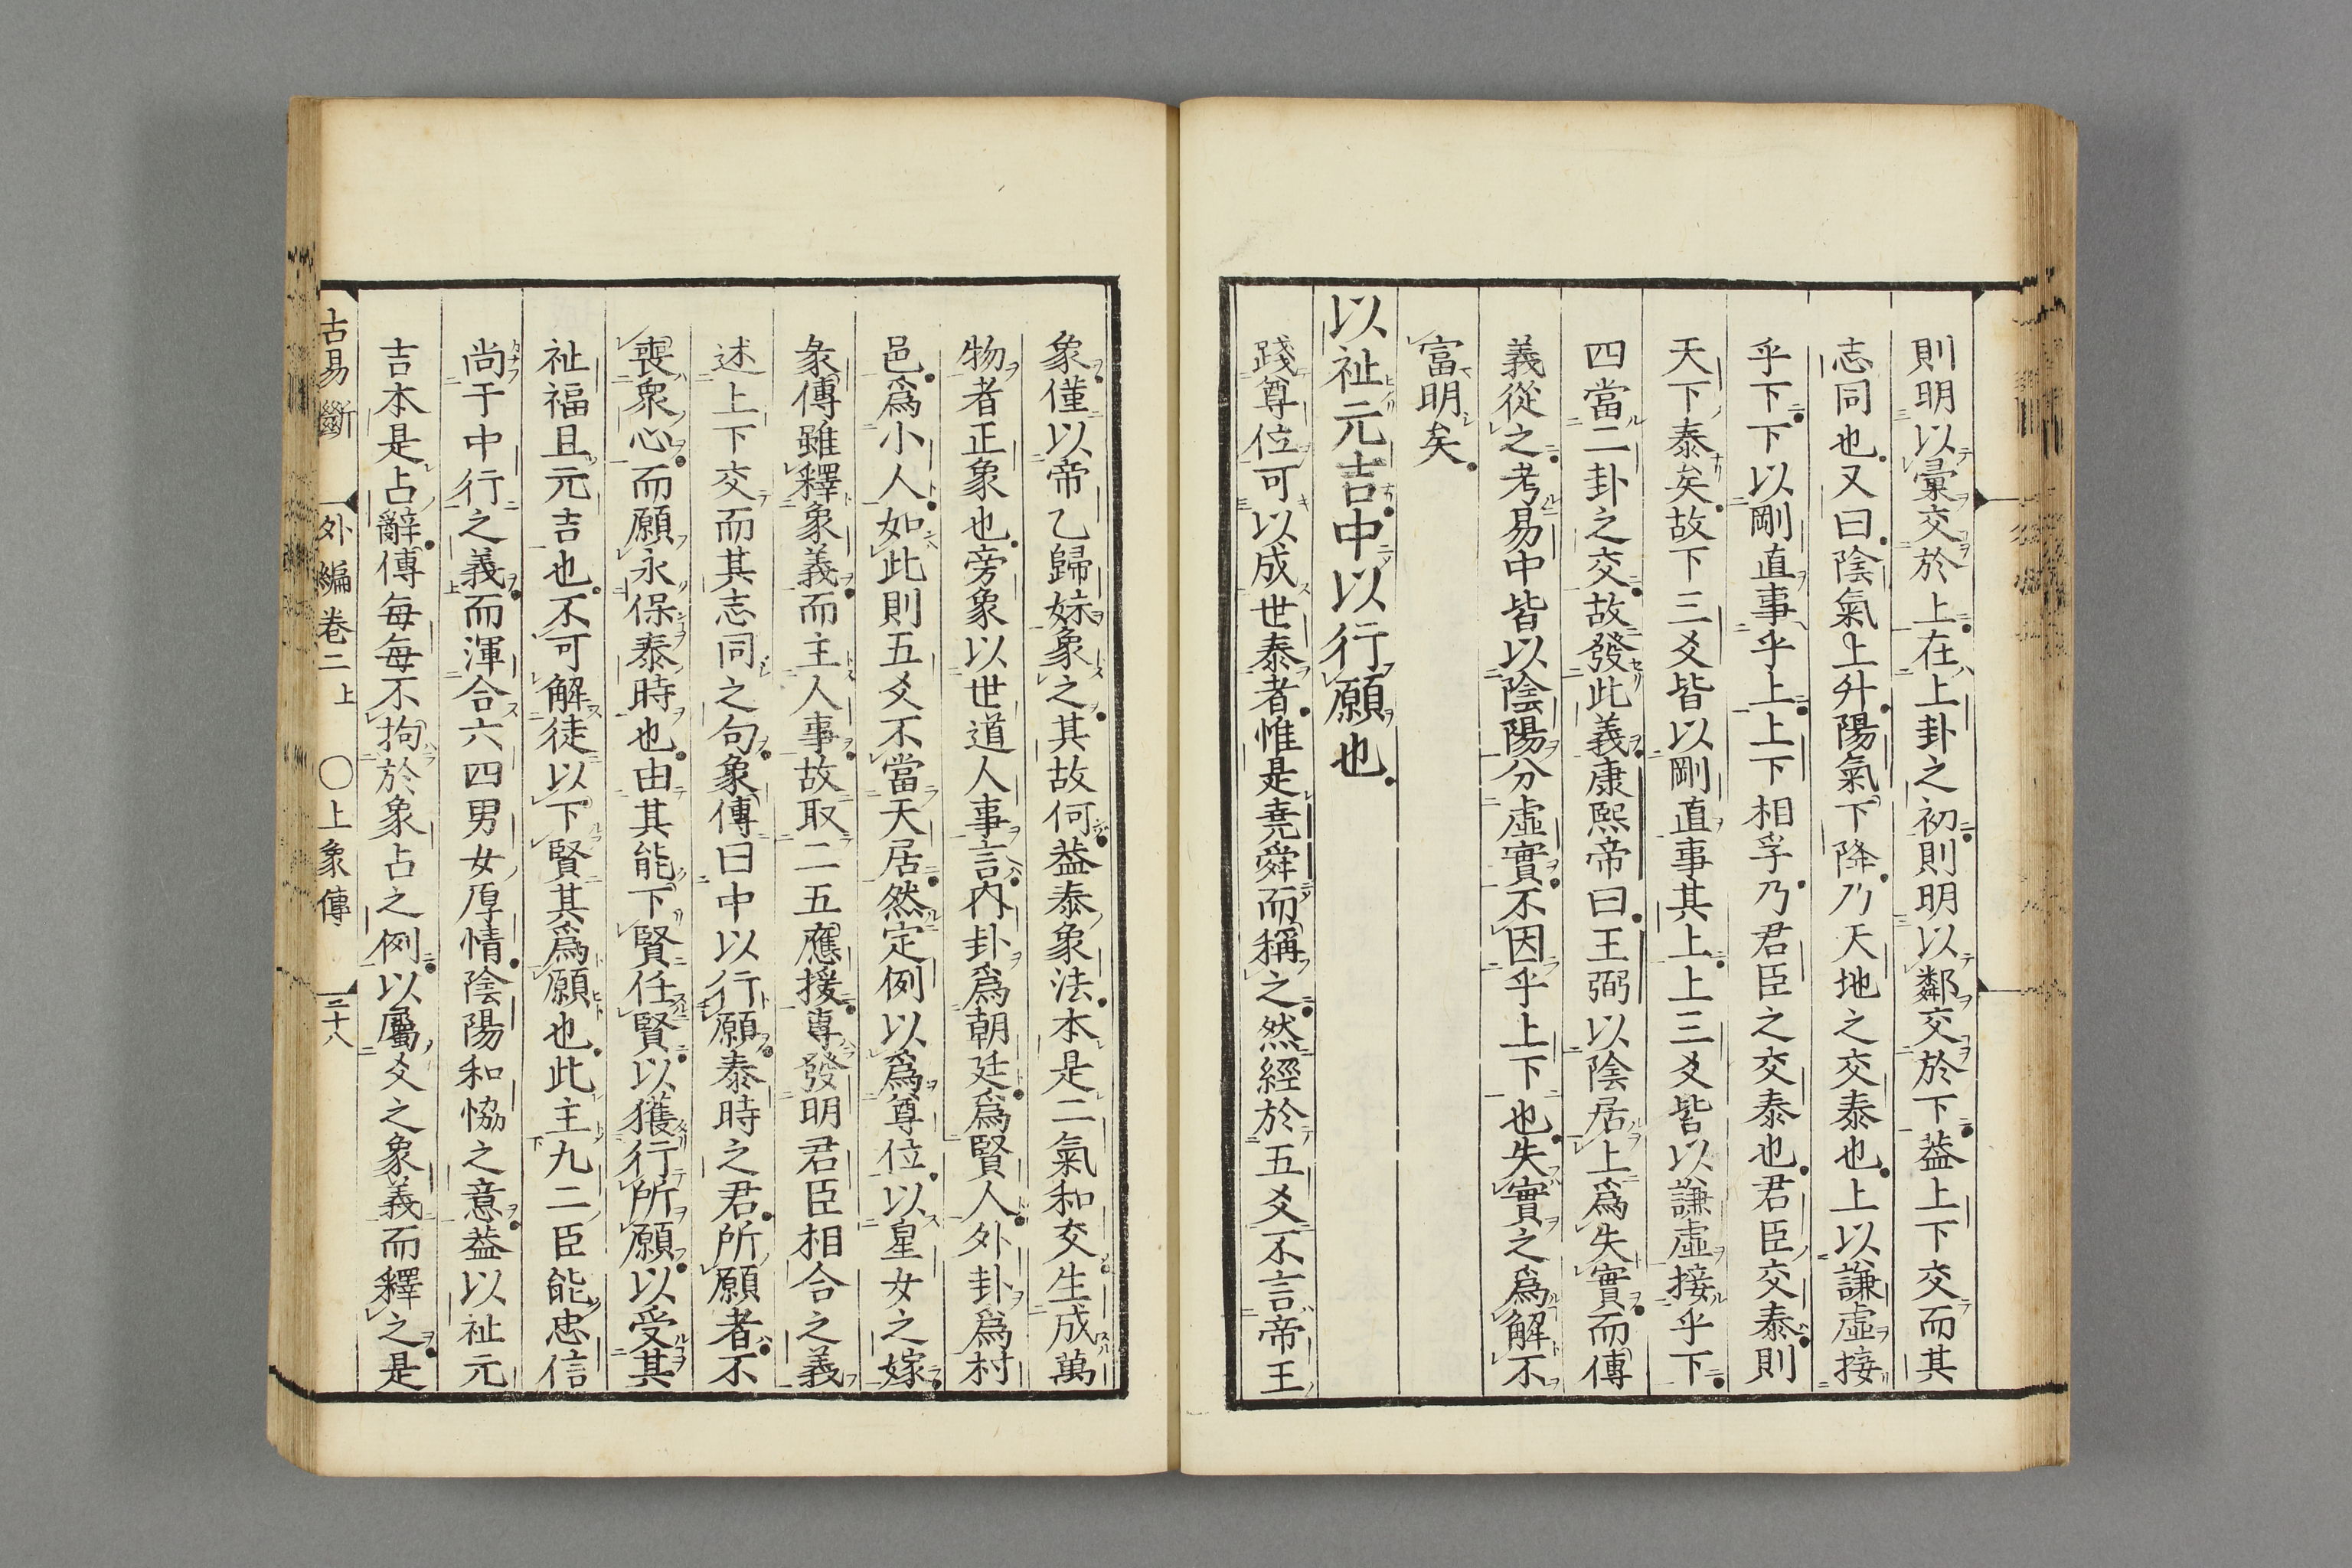 則明以彙交於上在上卦之初則明以鄰交於下葢上下交而其
志同也又曰陰氣上升陽氣下降乃天地之交泰也上以謙虛接
乎下下以剛直事乎上上下相孚乃君臣之交泰也君臣交泰則
天下泰矣故下三爻皆以剛直事其上上三爻皆以謙虛接乎下
四當二卦之交故發此義康熙帝曰王弼以陰居上爲失實而傳
義從之考易中皆以陰陽分虛實不因乎上下也失實之爲解不
富明矣
以祉元吉中以行願也
踐尊位可以成世泰者惟是堯舜而稱之然經於五爻不言帝王
象僅以帝乙歸妹象之其故何葢泰象法本是二氣和交生成萬
物者正象也旁象以世道人事言內卦爲朝廷爲賢人外卦爲村
邑爲小人如此則五爻不當天居然定例以爲尊位以皇女之嫁
彖傳雖釋象義而主人事故取二五應援專發明君臣相合之義
述上下交而其志同之句象傳曰中以行願泰時之君所願者不
喪衆心而願永保泰時也由其能下賢任賢以獲行所願以受其
祉福且元吉也不可解徒以下賢其爲願也此主九二臣能忠信
尚于中行之義而渾合六四男女厚情陰陽和恊之意葢以祉元
吉本是占辭傳每每不拘於象占之例以屬爻之象義而釋之是
古易斷 外編卷二上 ○上象傳 二十八